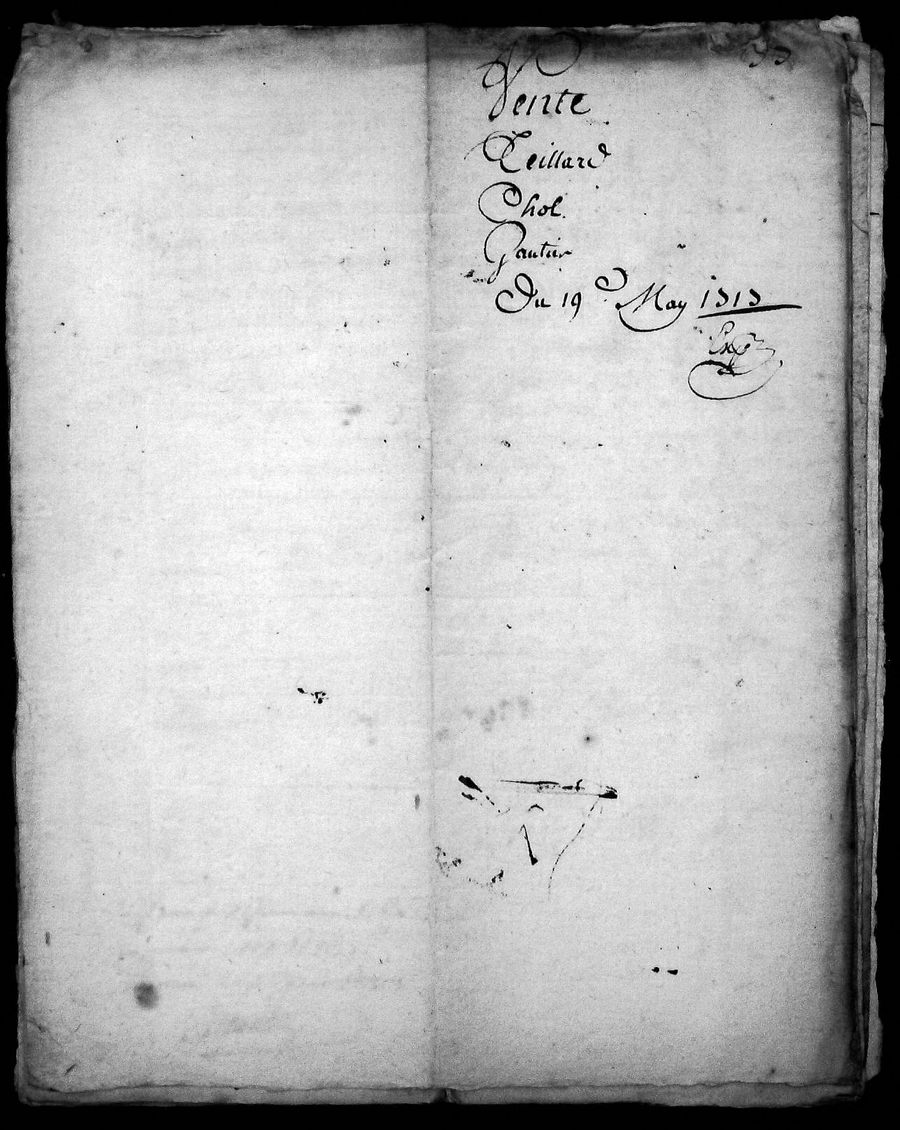 Vente
Teillard
Chol.
Gautier
Du 19e. May 1313
Exp